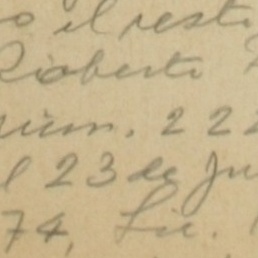 o el resto
Rioberto
núm. 222
l 23 de Ju
74, Lic.